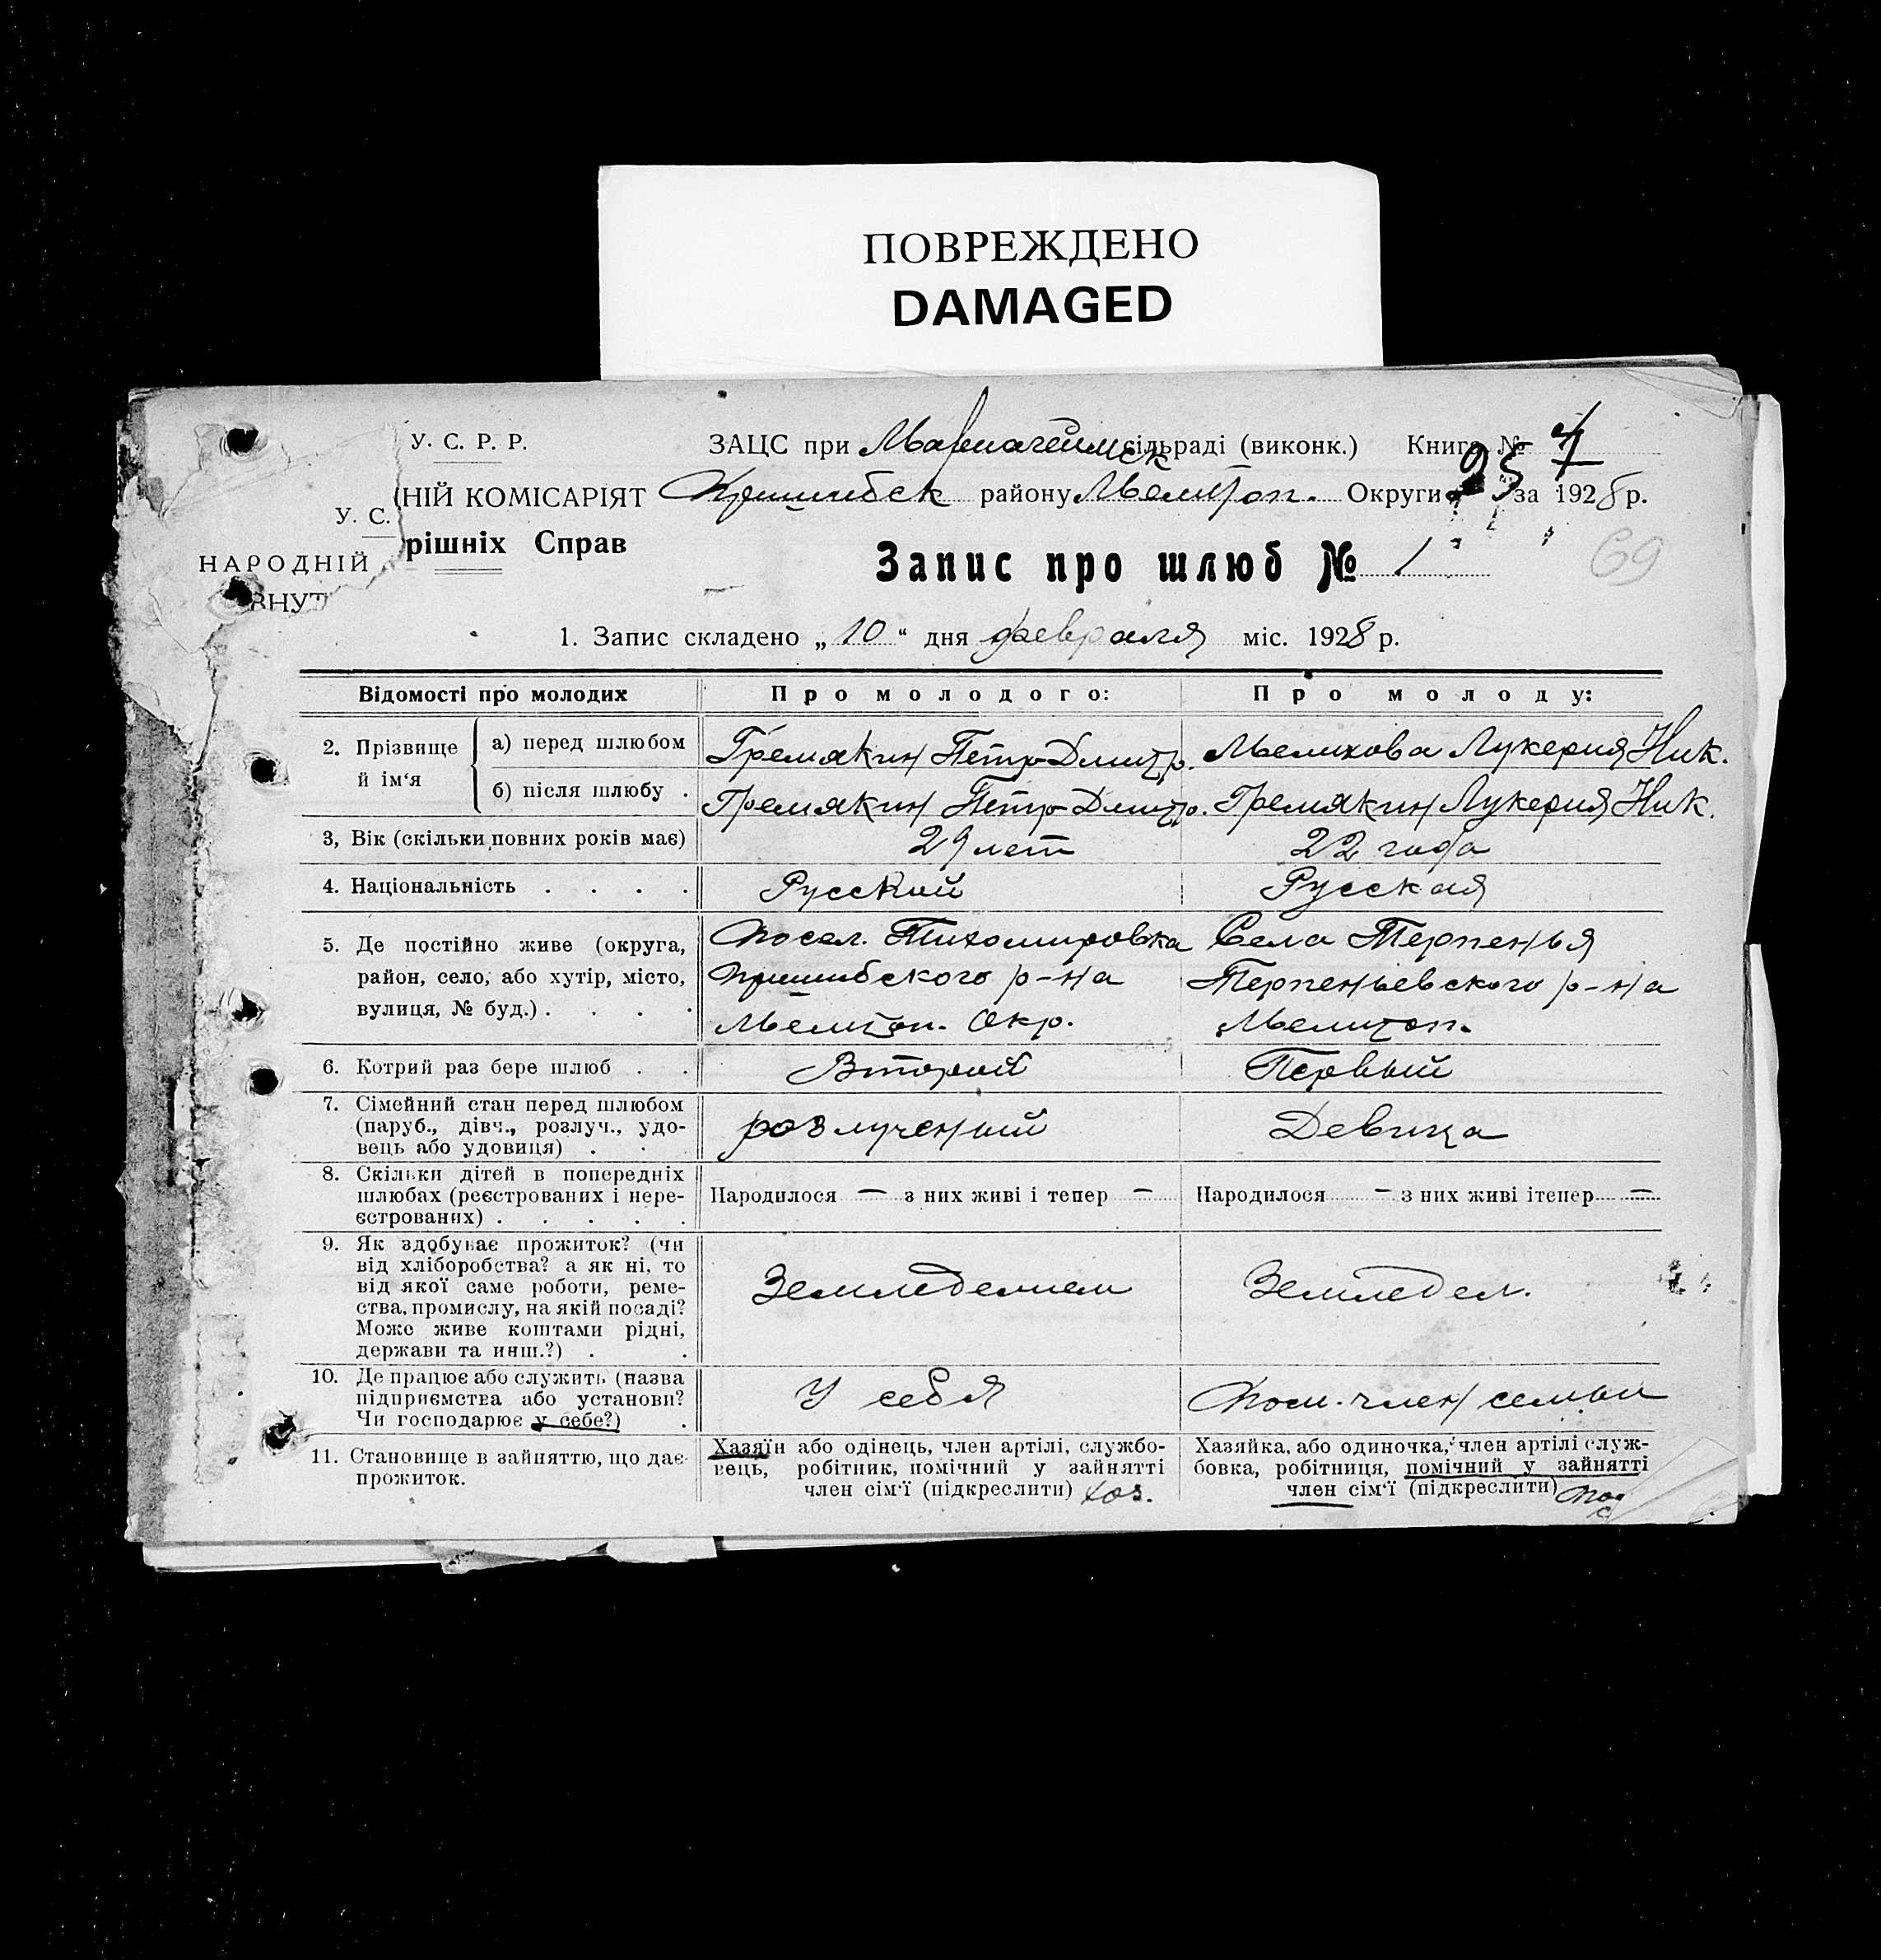 ПОВРЕЖДЕНО
DAMAGED
У. С. Р. Р.
ЗАЦС при Мариагеймск сільраді (виконк.) Книга № 4
НІЙ КОМІСАРІЯТ Пришибск району Мелитоп. Округи 25 за 1928 р.
У. С.
рішніх Справ
НАРОДНІЙ
ВНУТ
Запис про шлюб № 1
69
1. Запис складено „ 10 “ дня февраля міс. 1928 р.
Відомості про молодих Про молодого: Про молоду:
2. Прізвище й ім‘я
а) перед шлюбом Гремякин Петр Дмитр. Мелихова Лукерия Ник.
б) після шлюбу . Гремякин Петр Дмитр. Гремякин Лукерия Ник.
3, Вік (скільки повних років має) 29 лет 22 года
4. Національність . . . . Русский Русская
5. Де постійно живе (округа, район, село, або хутір, місто, вулиця, № буд.) . . . .
Посел. Тихомировка
Пришибского р-на
Мелитоп. Окр.
Села Терпенья
Терпеньевского р-на
Мелитоп.
6. Котрий раз бере шлюб . . Второй Первый
7. Сімейний стан перед шлюбом
(паруб., дівч., розлуч., удо-
вець або удовиця) . . .
розлученый Девица
8. Скільки дітей в попередніх
шлюбах (реєстрованих і нере-
єстрованих) . . . . .
Народилося — з них живі і тепер —
Народилося — з них живі ітепер —
9. Як здобуває прожиток? (чи
від хліборобства? а як ні, то
від якої саме роботи, реме-
ства, промислу, на якій посаді?
Може живе коштами рідні,
держави та инш.?) . .
Земледелием Земледел.
10. Де працює або служить (назва
підприємства або установи?
Чи господарює у себе?) .
У себя Пом. член семьи
11. Становище в зайняттю, що дає
прожиток.
Хазяїн або одінець, член артілі, службо-
вець, робітник, помічний у зайнятті
член сім‘ї (підкреслити) хоз.
Хазяйка, або одиночка, член артілі служ-
бовка, робітниця, помічний у зайнятті
член сім‘ї (підкреслити)